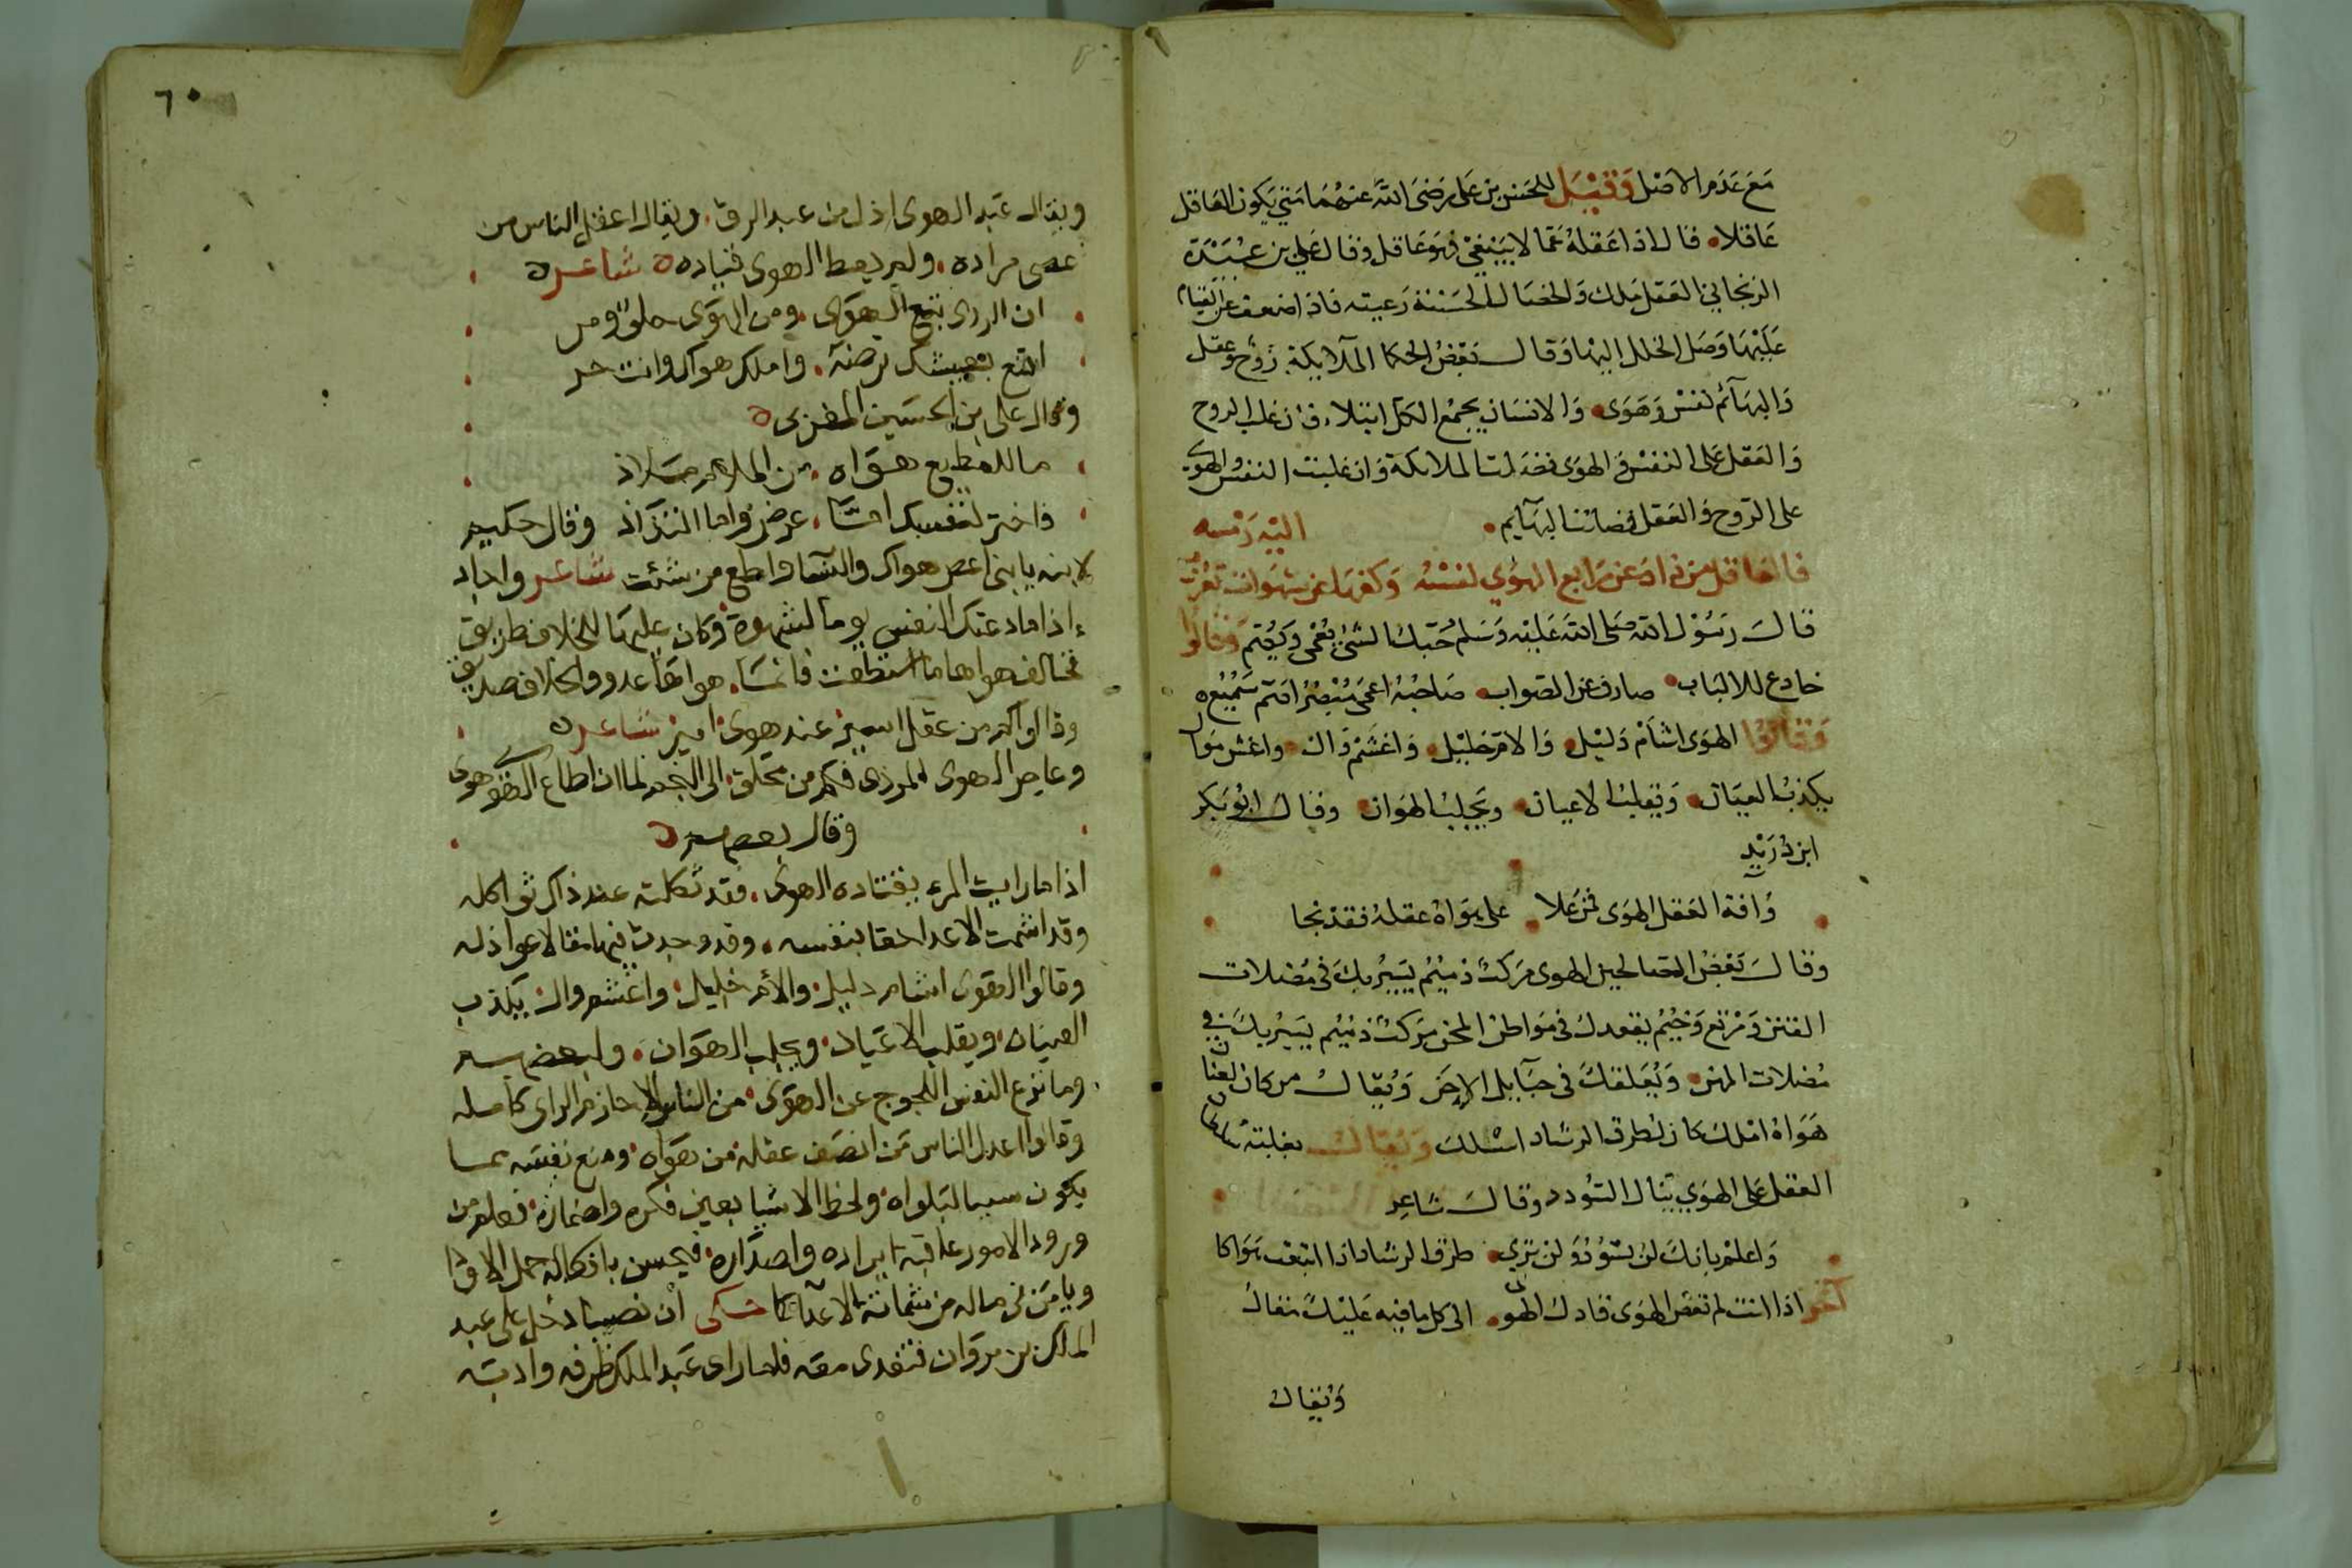 مَعَ عَدَم الاصْل وَقيْلَ للحَسَن بن عَلى رَضىَ اللهُ عَنهُمَا مَتىَ يَكون العَاقل
عَاقلا قال اذا عَقلهُ عَمّا لا يَنبَغىْ فهوَ عَاقل وقال عَلي بن عُبَيْدَة
الريحانى العَقل مَلك وَالخصَال الحَسَنة رَعيته فاذا ضعف عن القيام
عَليْهَا وَصَل الخلل اليْهَا وَقال بَعْضُ الحكما الملايكة رُوْح وعقل
وَالبهَآئم نَفسْ وَهَوَى وَالانسَان يجمَع الكل ابتلاء فان غلب الروح
وَالعَقل عَلى النفسْ وَالهوَى فضل الملايكة وَان غلبت النفس والهوى
على الرّوح وَالعَقل فضلتْه البهَآيم
فالعَاقل من ذادَ عن مَرابع الهوَي نفسْهُ وَكفهَا عن شهَوات
قالَ رَسُوْل الله صَلى الله عَليْه وَسَلم حُبّكَ الشئ يُعْمي وَيُصِم وَقالوا
خادع للالبَاب صارف عن الصّواب صَاحبُهُ اعمَى مُبْصرُ اصَم سَميْع
وَقالوْا الهوَى اشأمْ دَليْل وَالامْ خليْل وَاغشَمْ وَال واغش مَوال
يكذبُ العيَان وَيقلبُ الاعيان ويَجلبُ الهَوان وقال ابُو بَكر
ابن دُرَيْدٍ
وَافة العَقل الهوَى فمن عَلا على هَوَاهُ عقلهُ فقدْ نجا
وقالَ بَعْضُ الصّالحين الهوى مَركبٌ ذميْمُ يَسيْرُ بكَ فى مُضلات
الفتن وَمَرْتع وَخيْمُ يقعدكَ فى مَوَاطن المحن مَركبٌ ذميْم يَسيْر بكَ في
مُضلات المهن وَيُعَلقكَ فى حبَآيل الإحَن وَيُقالُ من كان لعنان
هَوَاهُ املكَ كان لطرق الرشاد اسْلك وَيُقالُ بغلبَة سلطان
العقل عَلى الهوَي يَنال السّؤدد وقالَ شاعِر
وَاعلمْ بانكَ لن تسُوْدَ وَلن تَري طرق الرشاد اذا اتبعْت هَوَاكا
آخر اذا انتَ لم تعْص الهوَى قادكَ الهوى الى كل ما فيه عَليْكَ مَقالُ
وَيُقالُ
٦٠
ويقال عَبد الهوى اذل من عبد الرق. ويقال اعقل الناس من
عصى مراده. ولم يعط الهوى قياده شاعر
ان الردى تبع الهوَى. ومن الهوَى حلو ومر
اقنع بعيشك ترضه. واملك هواك وانت حر
وقال على بن الحسَين المغربى
ما للمطيع هَوَاه. من الملام مَلاذ
فاختر لنفسك امّا. عرض واما التذاذ وقال حكيم
لابنه يا بنى اعص هواك والنسا واطع من شئت شاعر واجاد
اذا ما دعتك النفس يوما لشهوة وكان عليها للخلاف طريق
فخالف هواها ما استطعت فانمّا. هواهَا عدو والخلاف صديق
وقالوا كم من عقل اسير عند هوى امير شاعر
وعاصِ الهوى المردى فكم من محلق. الى النجم لما ان اطاع الهوى هوى
وقال بعضهم
اذا ما رايت المرء يقتاده الهوى. فقد ثكلته عند ذاك ثواكله
وقد اشمت الاعدا حقا بنفسه. وقد وجدت فيه مقالا عواذله
وقالوا الهوَى اشام دليل. والأم خليل. واغشم وال. يكذب
العيَان. ويقلب الاعيَان. ويجلب الهوَان. ولبعضهم
وما نزع النفس اللجوج عن الهوَى. من الناس الا حازم الراى كامله
وقالوا اعدل الناس مَن انصَف عقله من هوَاه. ومنع نفسَه ممّا
يكون سببا لبَلواه. ولحظ الاشيا بعين فكره واضماره. فعلم من
ورود الامور عاقبة ايراده واصدَاره. فيحسن
ويامَن فى ماله من شماتة الاعدَا حُكى ان نصيبا دخل على عبد
الملك بن مروَان فتغدى معَه فلما راى عَبد الملك ظرفه وادبَه